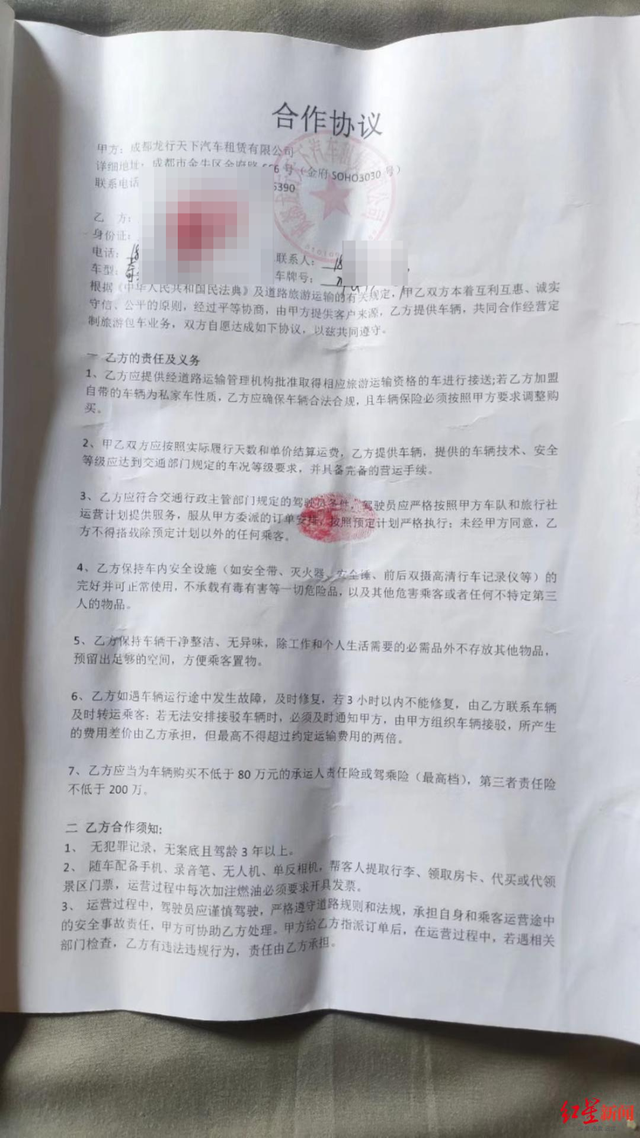 合作协议
甲方：成都龙行天下汽车租赁有限公司
详细地址：成都市金牛区金府路 6号（金府 SOHO3030 号）
联系电话 5390
乙 方：
身份证：
电话：18 联系人：18
车型： 车牌号：
根据《中华人民共和国民法典》及道路旅游运输的有关规定，甲乙双方本着互利互惠、诚实
守信、公平的原则，经过平等协商，由甲方提供客户来源，乙方提供车辆，共同合作经营定
制旅游包车业务，双方自愿达成如下协议，以兹共同遵守。
一 乙方的责任及义务
1、乙方应提供经道路运输管理机构批准取得相应旅游运输资格的车进行接送;若乙方加盟
自带的车辆为私家车性质，乙方应确保车辆合法合规，且车辆保险必须按照甲方要求调整购
买。
2、甲乙双方应按照实际履行天数和单价结算运费，乙方提供车辆，提供的车辆技术、安全
等级应达到交通部门规定的车况等级要求，并具备完备的营运手续。
3、乙方应符合交通行政主管部门规定的驾驶员条件，驾驶员应严格按照甲方车队和旅行社
运营计划提供服务，服从甲方委派的订单安排，按照预定计划严格执行；未经甲方同意，乙
方不得搭载除预定计划以外的任何乘客。
4、乙方保持车内安全设施（如安全带、灭火器、安全锤、前后双摄高清行车记录仪等）的
完好并可正常使用，不承载有毒有害等一切危险品，以及其他危害乘客或者任何不特定第三
人的物品。
5、乙方保持车辆干净整洁、无异味，除工作和个人生活需要的必需品外不存放其他物品，
预留出足够的空间，方便乘客置物。
6、乙方如遇车辆运行途中发生故障，及时修复，若 3 小时以内不能修复，由乙方联系车辆
及时转运乘客；若无法安排接驳车辆时，必须及时通知甲方，由甲方组织车辆接驳，所产生
的费用差价由乙方承担，但最高不得超过约定运输费用的两倍。
7、乙方应当为车辆购买不低于 80 万元的承运人责任险或驾乘险（最高档），第三者责任险
不低于 200 万。
二 乙方合作须知:
1、 无犯罪记录，无案底且驾龄 3 年以上。
2、 随车配备手机、录音笔、无人机、单反相机，帮客人提取行李、领取房卡、代买或代领
景区门票，运营过程中每次加注燃油必须要求开具发票。
3、 运营过程中，驾驶员应谨慎驾驶，严格遵守道路规则和法规，承担自身和乘客运营途中
的安全事故责任，甲方可协助乙方处理。甲方给乙方指派订单后，在运营过程中，若遇相关
部门检查，乙方有违法违规行为，责任由乙方承担。
红星新闻